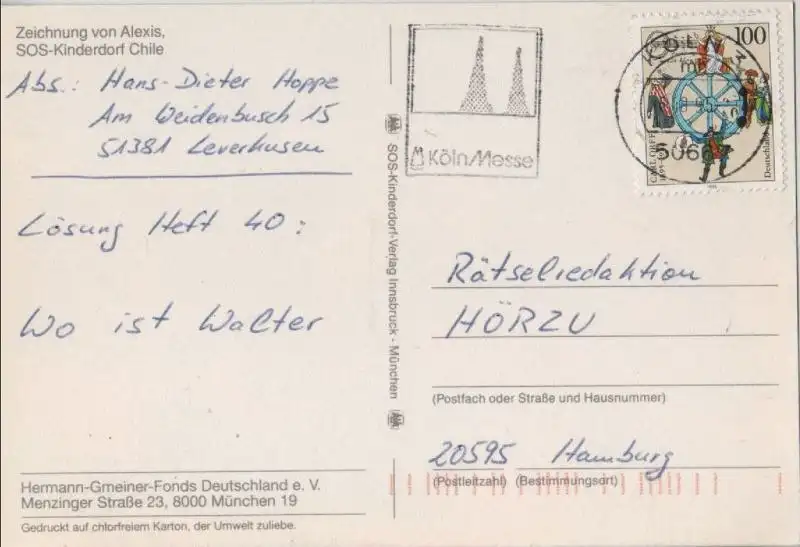 Zeichnung von Alexis,
SOS-Kinderdorf Chile
Abs.: Hans-Dieter Hoppe
Am Weidenbusch 15
51381 Leverkusen
Lösung Heft 40:
Wo ist Walter
Hermann-Gmeiner-Fonds Deutschland e. V.
Menzinger Straße 23, 8000 München 19
Gedruckt auf chlorfreiem Karton, der Umwelt zuliebe.
SOS-Kinderdorf-Verlag Innsbruck - München
Köln/Messe
KÖLN
100
CARL ORFF
Deutschland
Rätselredaktion
HÖRZU
(Postfach oder Straße und Hausnummer)
20595 Hamburg
(Postleitzahl) (Bestimmungsort)